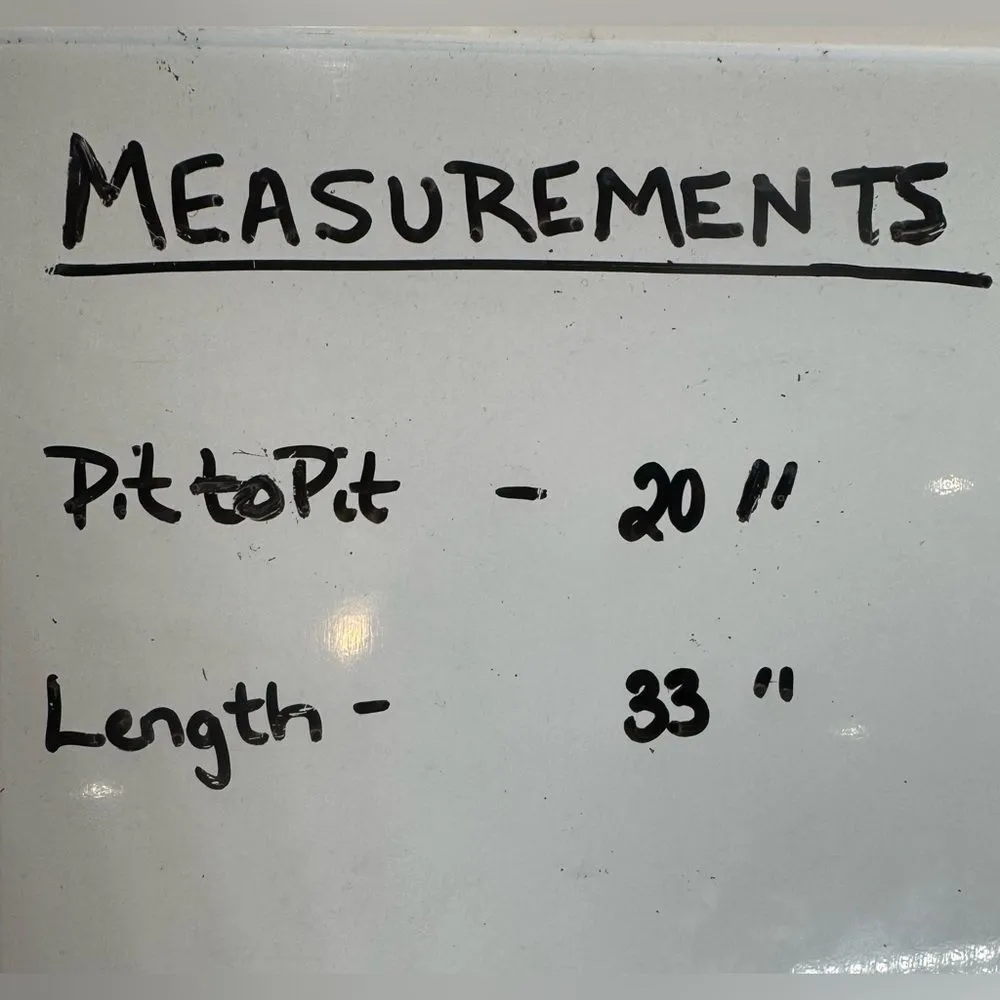 MEASUREMENTS
Pit to Pit - 20 "
Length - 33 "